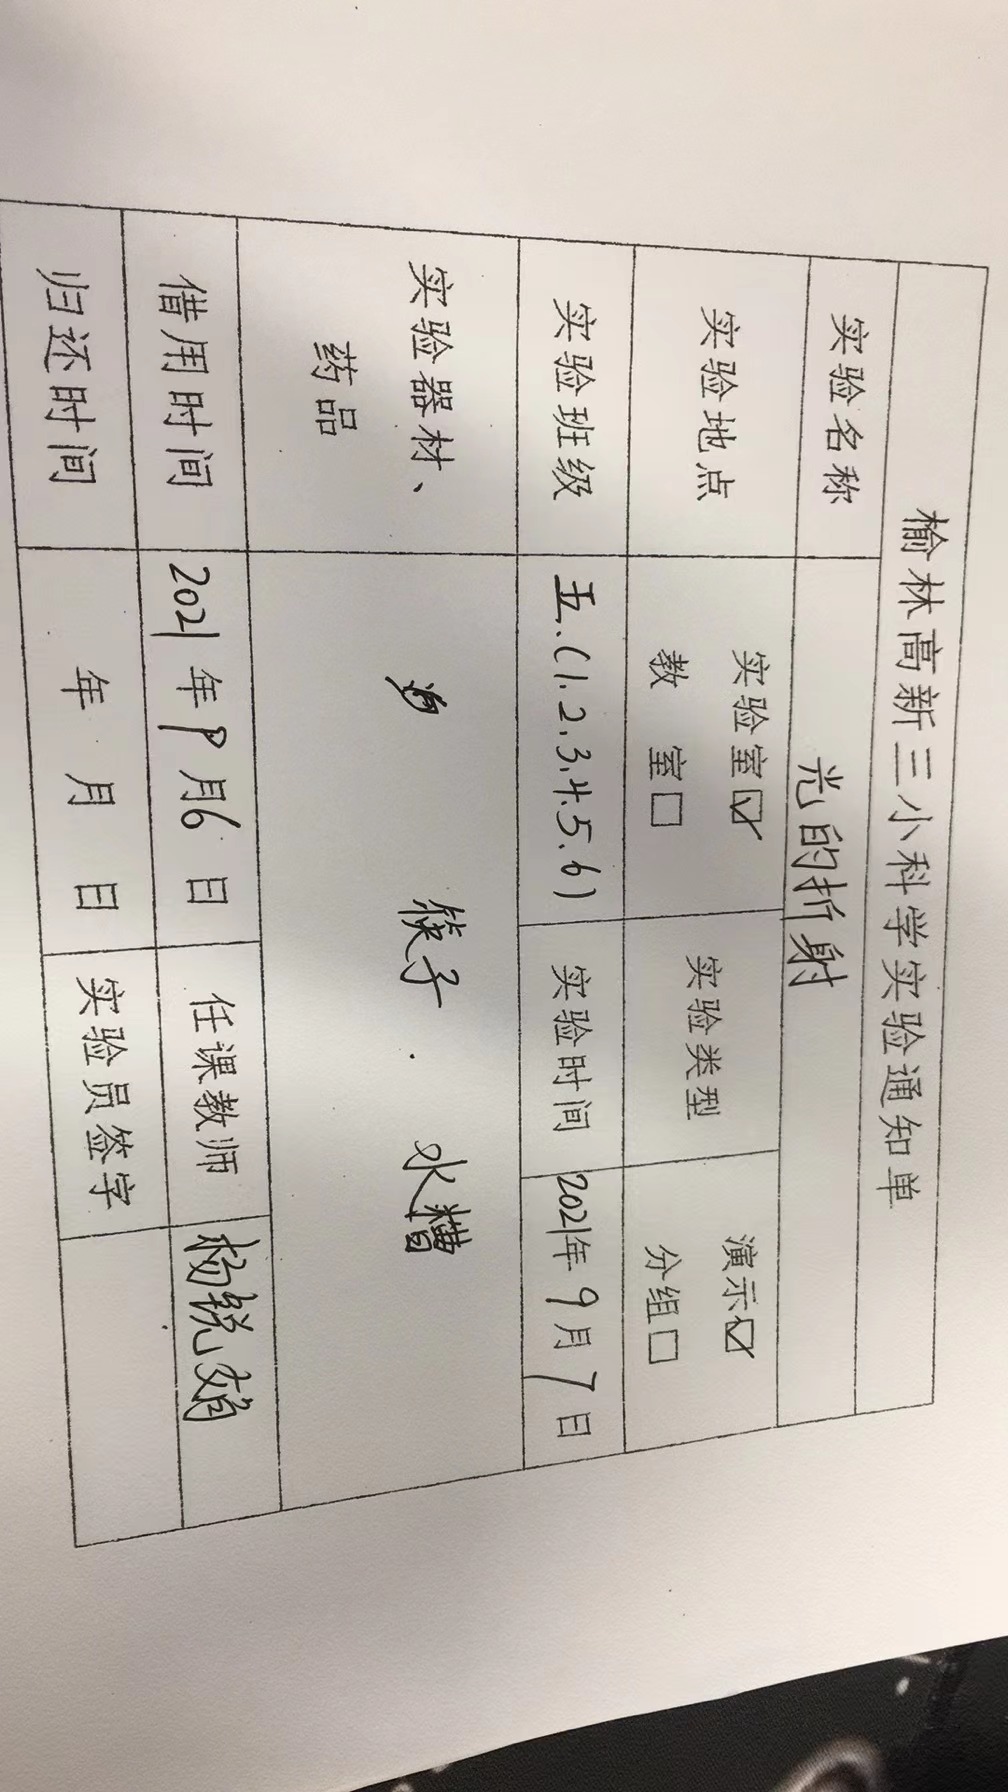 榆林高新三小科学实验通知单
实验名称 光的折射
实验地点 实验室☑ 教 室□ 实验类型 演示☑ 分组□
实验班级 五.(1.2.3.4.5.6) 实验时间 2021年9月7日
实验器材、药品 筷子. 水糟
借用时间 2021年9月6日 任课教师 杨锐娟
归还时间 年 月 日 实验员签字